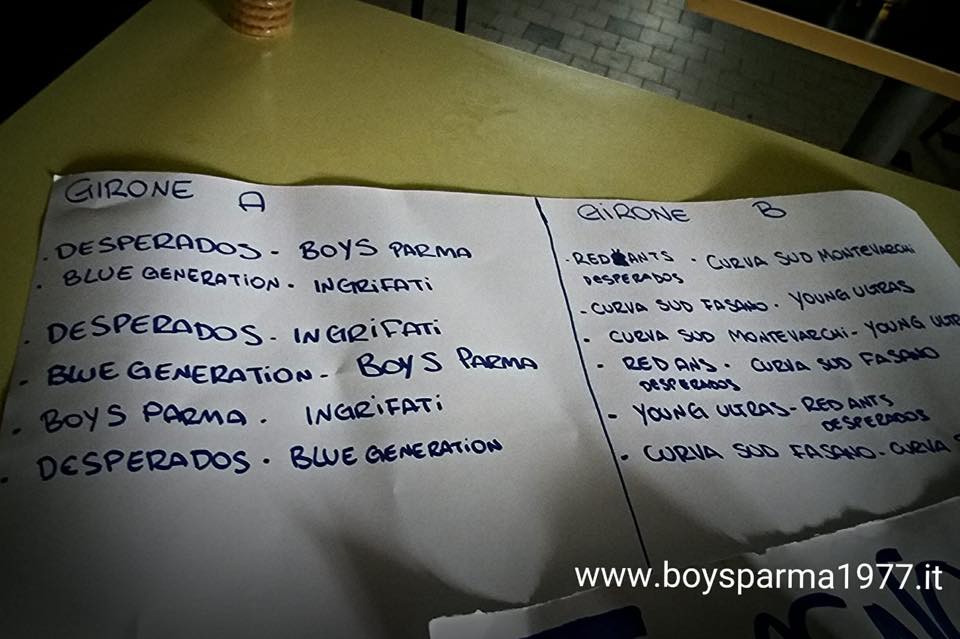 GIRONE A
DESPERADOS - BOYS PARMA
BLUE GENERATION - INGRIFATI
DESPERADOS - INGRIFATI
BLUE GENERATION - BOYS PARMA
BOYS PARMA - INGRIFATI
DESPERADOS - BLUE GENERATION
GIRONE B
RED ANTS - CURVA SUD MONTEVARCHI
DESPERADOS
CURVA SUD FASANO - YOUNG ULTRAS
CURVA SUD MONTEVARCHI - YOUNG ULTR
RED ANS - CURVA SUD FASANO
DESPERADOS
YOUNG ULTRAS - RED ANTS
DESPERADOS
CURVA SUD FASANO - CURVA S
www.boysparma1977.it